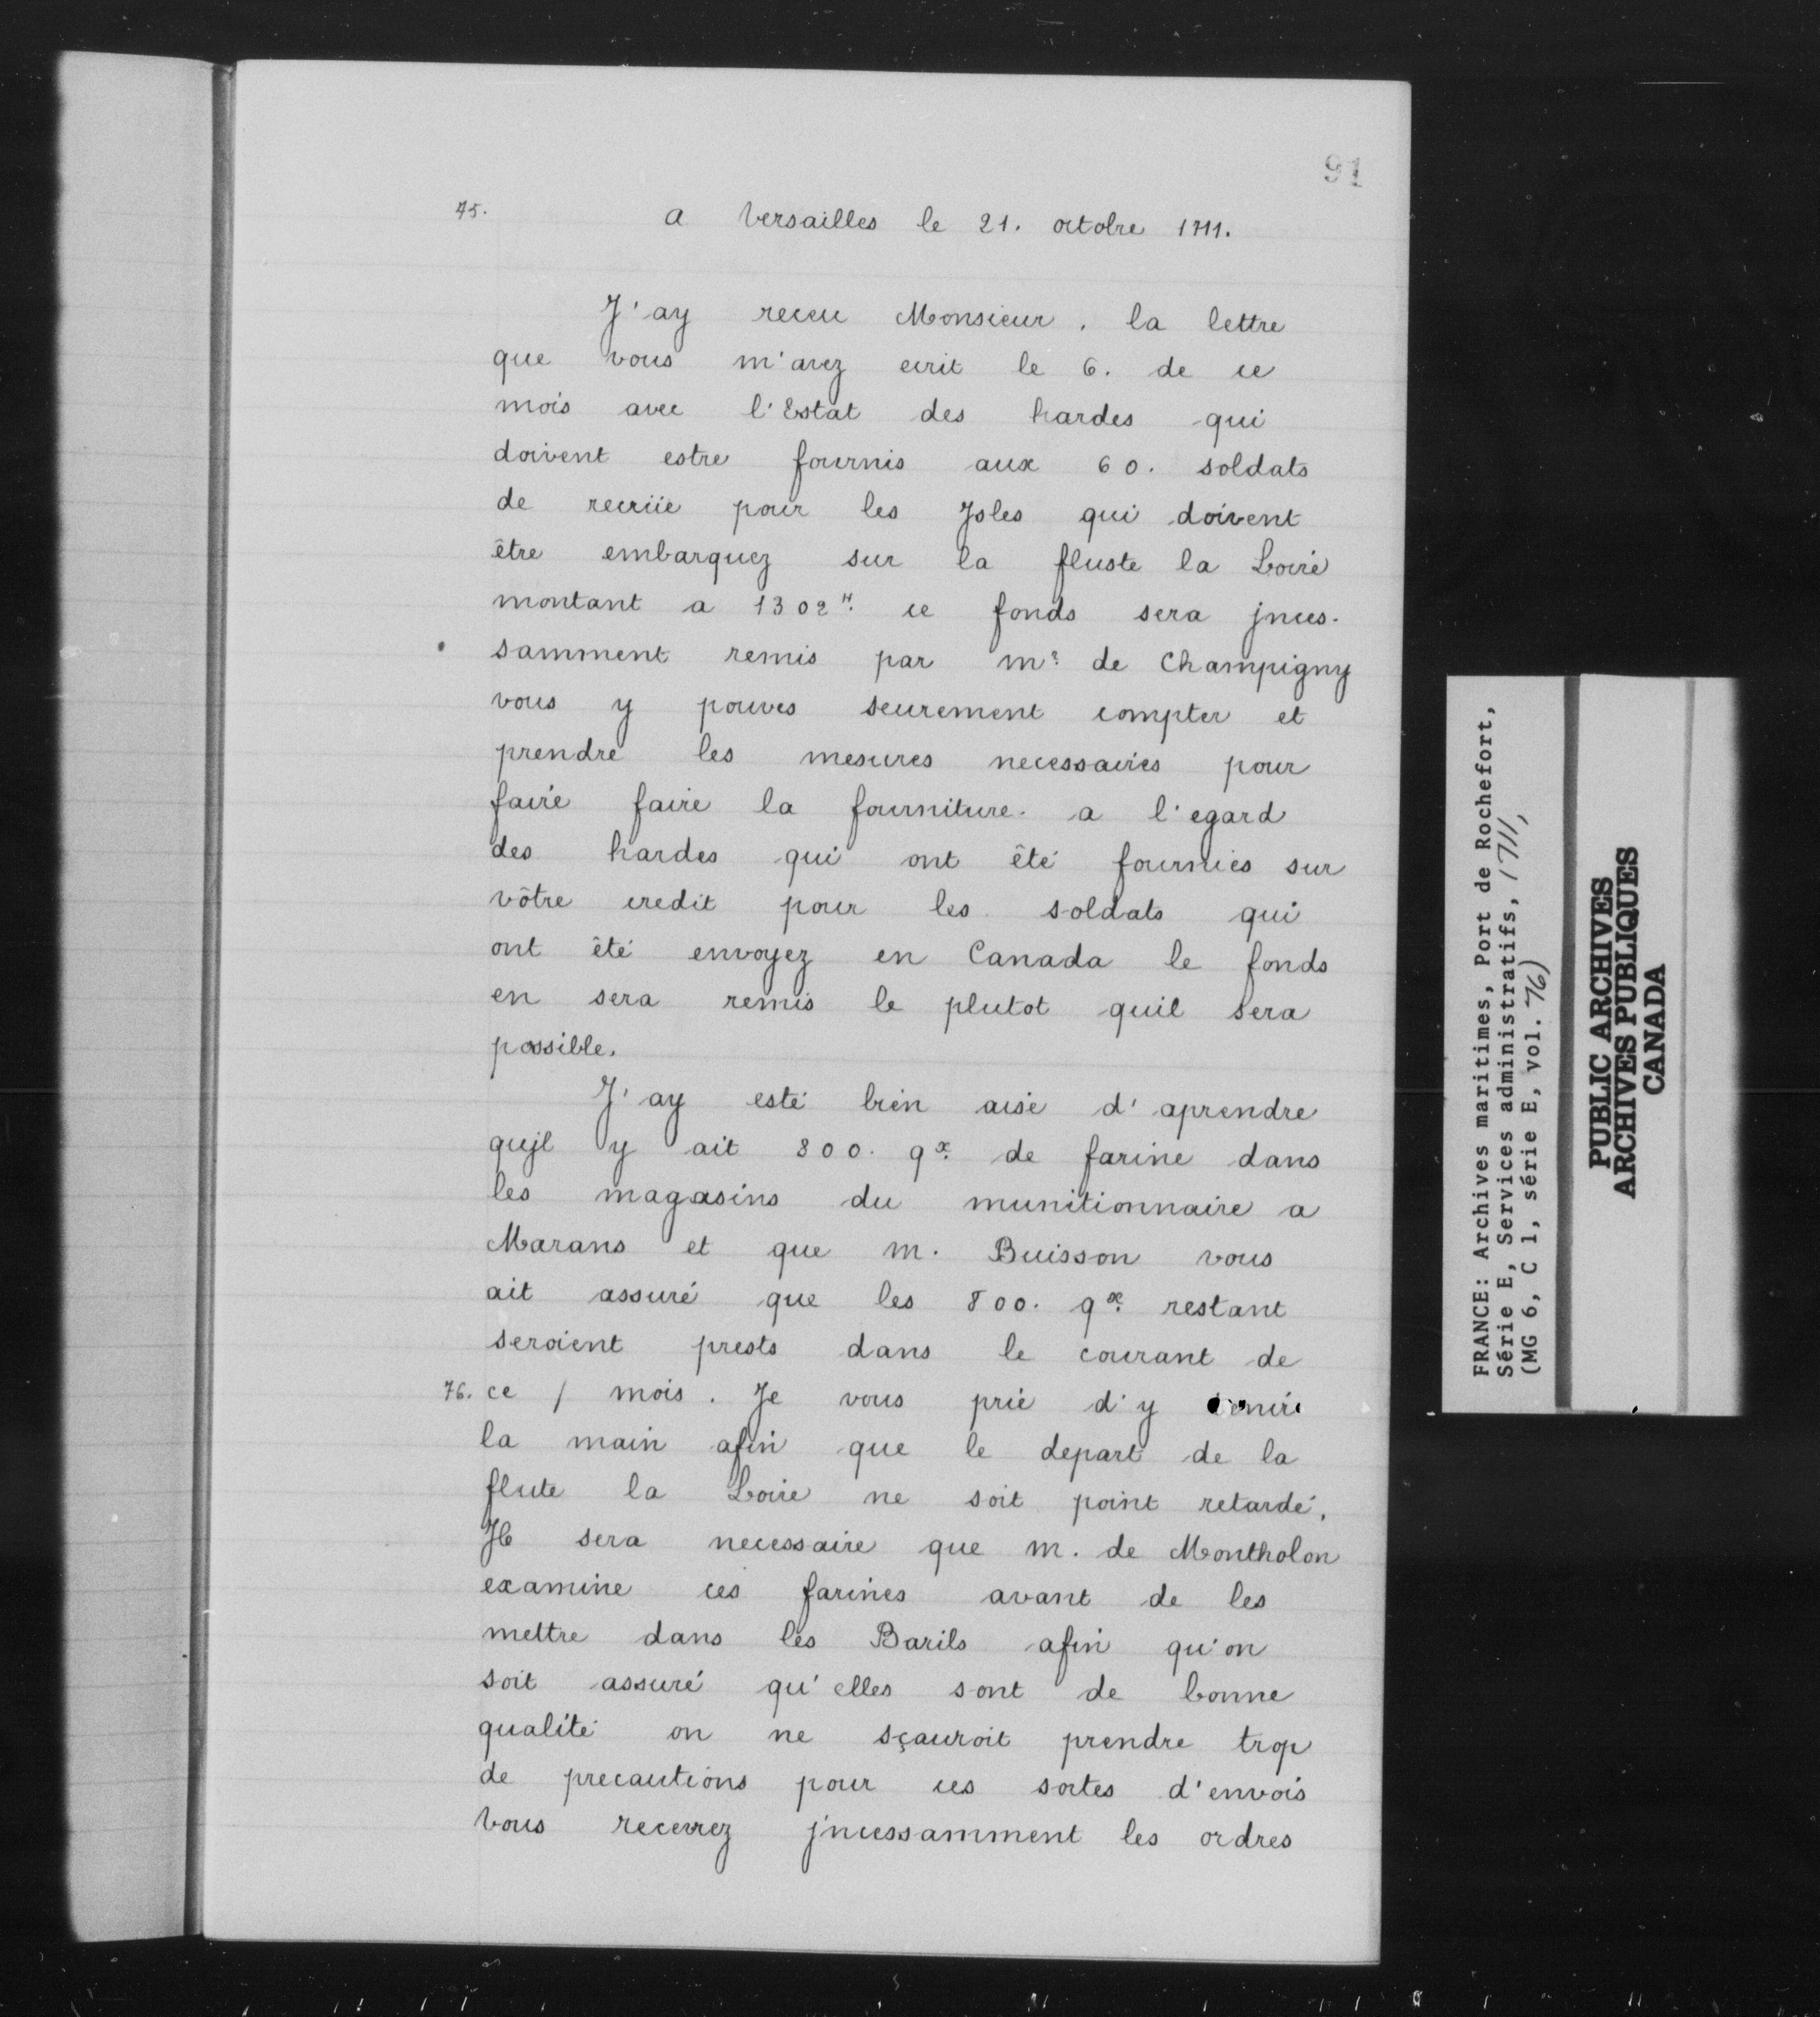 91
75.
a Versailles le 21. octobre 1711.
J'ay receu Monsieur, la lettre
que vous m'avez ecrit le 6. de ce
mois avec l'Estat des hardes qui
doivent estre fournis aux 60. soldats
de recrüe pour les Jsles qui doivent
être embarquez sur la fluste la Loire
montant a 1302#. ce fonds sera jnces-
samment remis par mr. de Champigny
vous y pouves seurement compter et
prendre les mesures necessaires pour
faire faire la fourniture. a l'egard
des hardes qui ont êté fournies sur
vôtre credit pour les soldats qui
ont êté envoyez en Canada le fonds
en sera remis le plutot quil sera
possible.
J'ay esté bien aise d'aprendre
qujl y ait 800. qx. de farine dans
les magasins du munitionnaire a
Marans et que m. Buisson vous
ait assuré que les 800. qx. restant
seroient prests dans le courant de
76. ce / mois. Je vous prie d'y tenir
la main afin que le depart de la
flute la Loire ne soit point retardé.
Jl sera necessaire que m. de Montholon
examine ces farines avant de les
mettre dans les Barils afin qu'on
soit assuré qu'elles sont de bonne
qualité on ne sçauroit prendre trop
de precautions pour ces sortes d'envois
vous recevrez jncessamment les ordres
FRANCE: Archives maritimes, Port de Rochefort,
Série E, Services administratifs, 1711,
(MG 6, C 1, série E, vol. 76)
PUBLIC ARCHIVES
ARCHIVES PUBLIQUES
CANADA